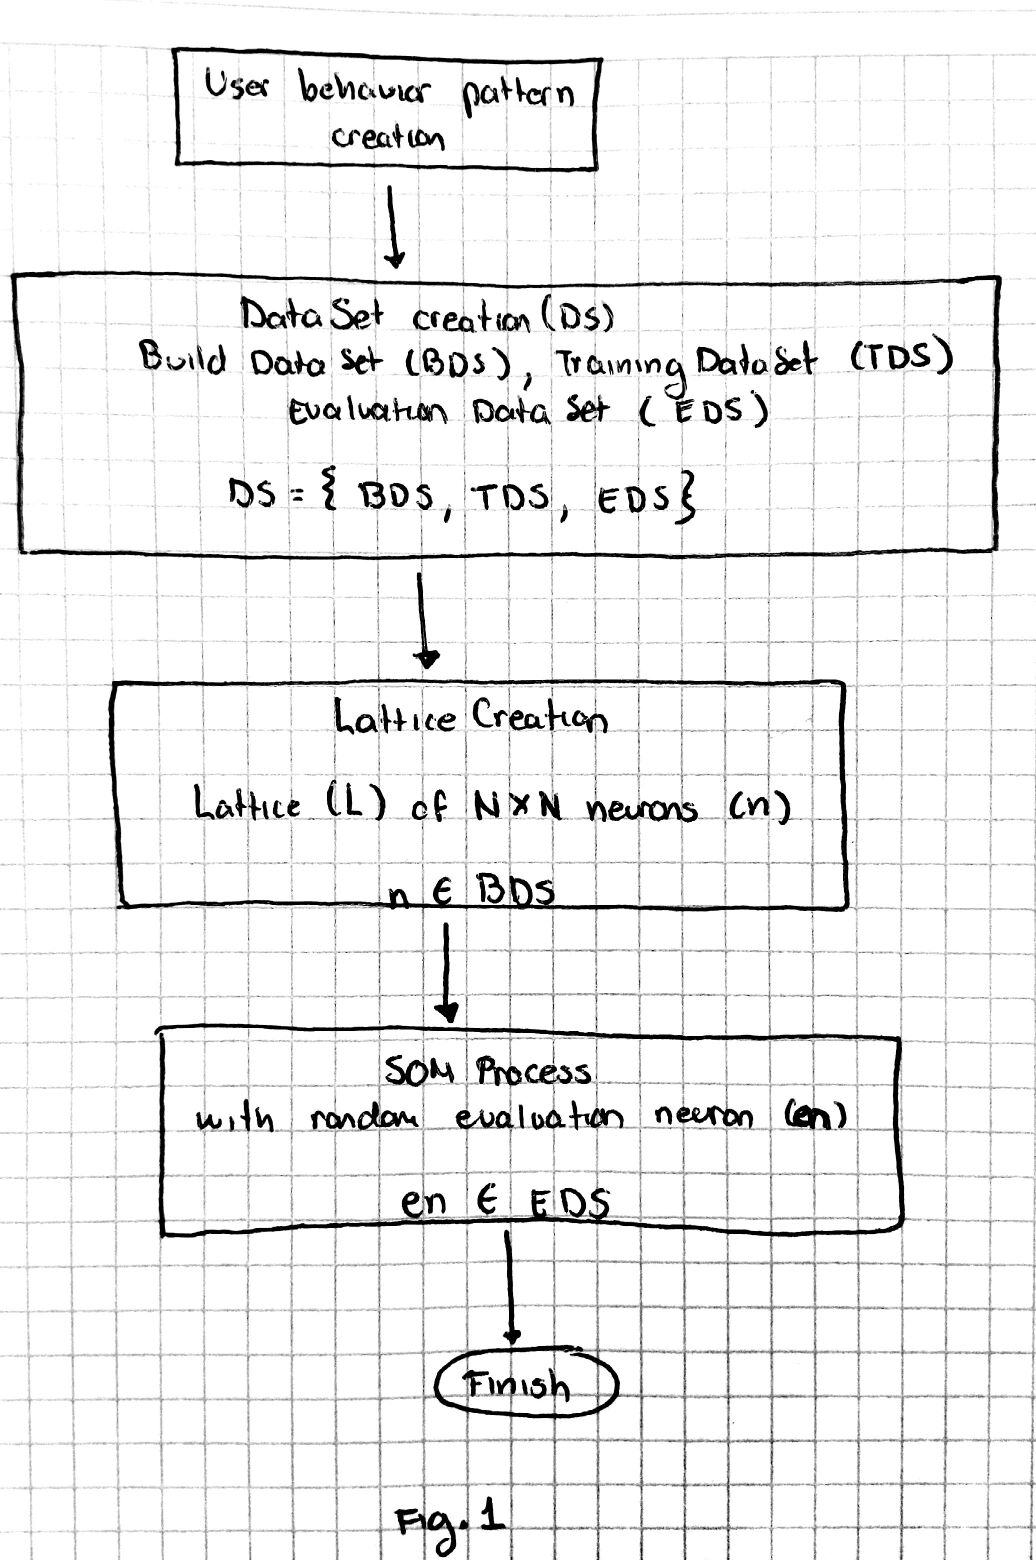 User behavior pattern
creation
Data Set creation (DS)
Build Data Set (BDS), Training Data Set (TDS)
Evaluation Data Set (EDS)
DS = { BDS, TDS, EDS}
Lattice Creation
Lattice (L) of N×N neurons (n)
n ∈ BDS
SOM Process
with random evaluation neuron (en)
en ∈ EDS
Finish
Fig. 1